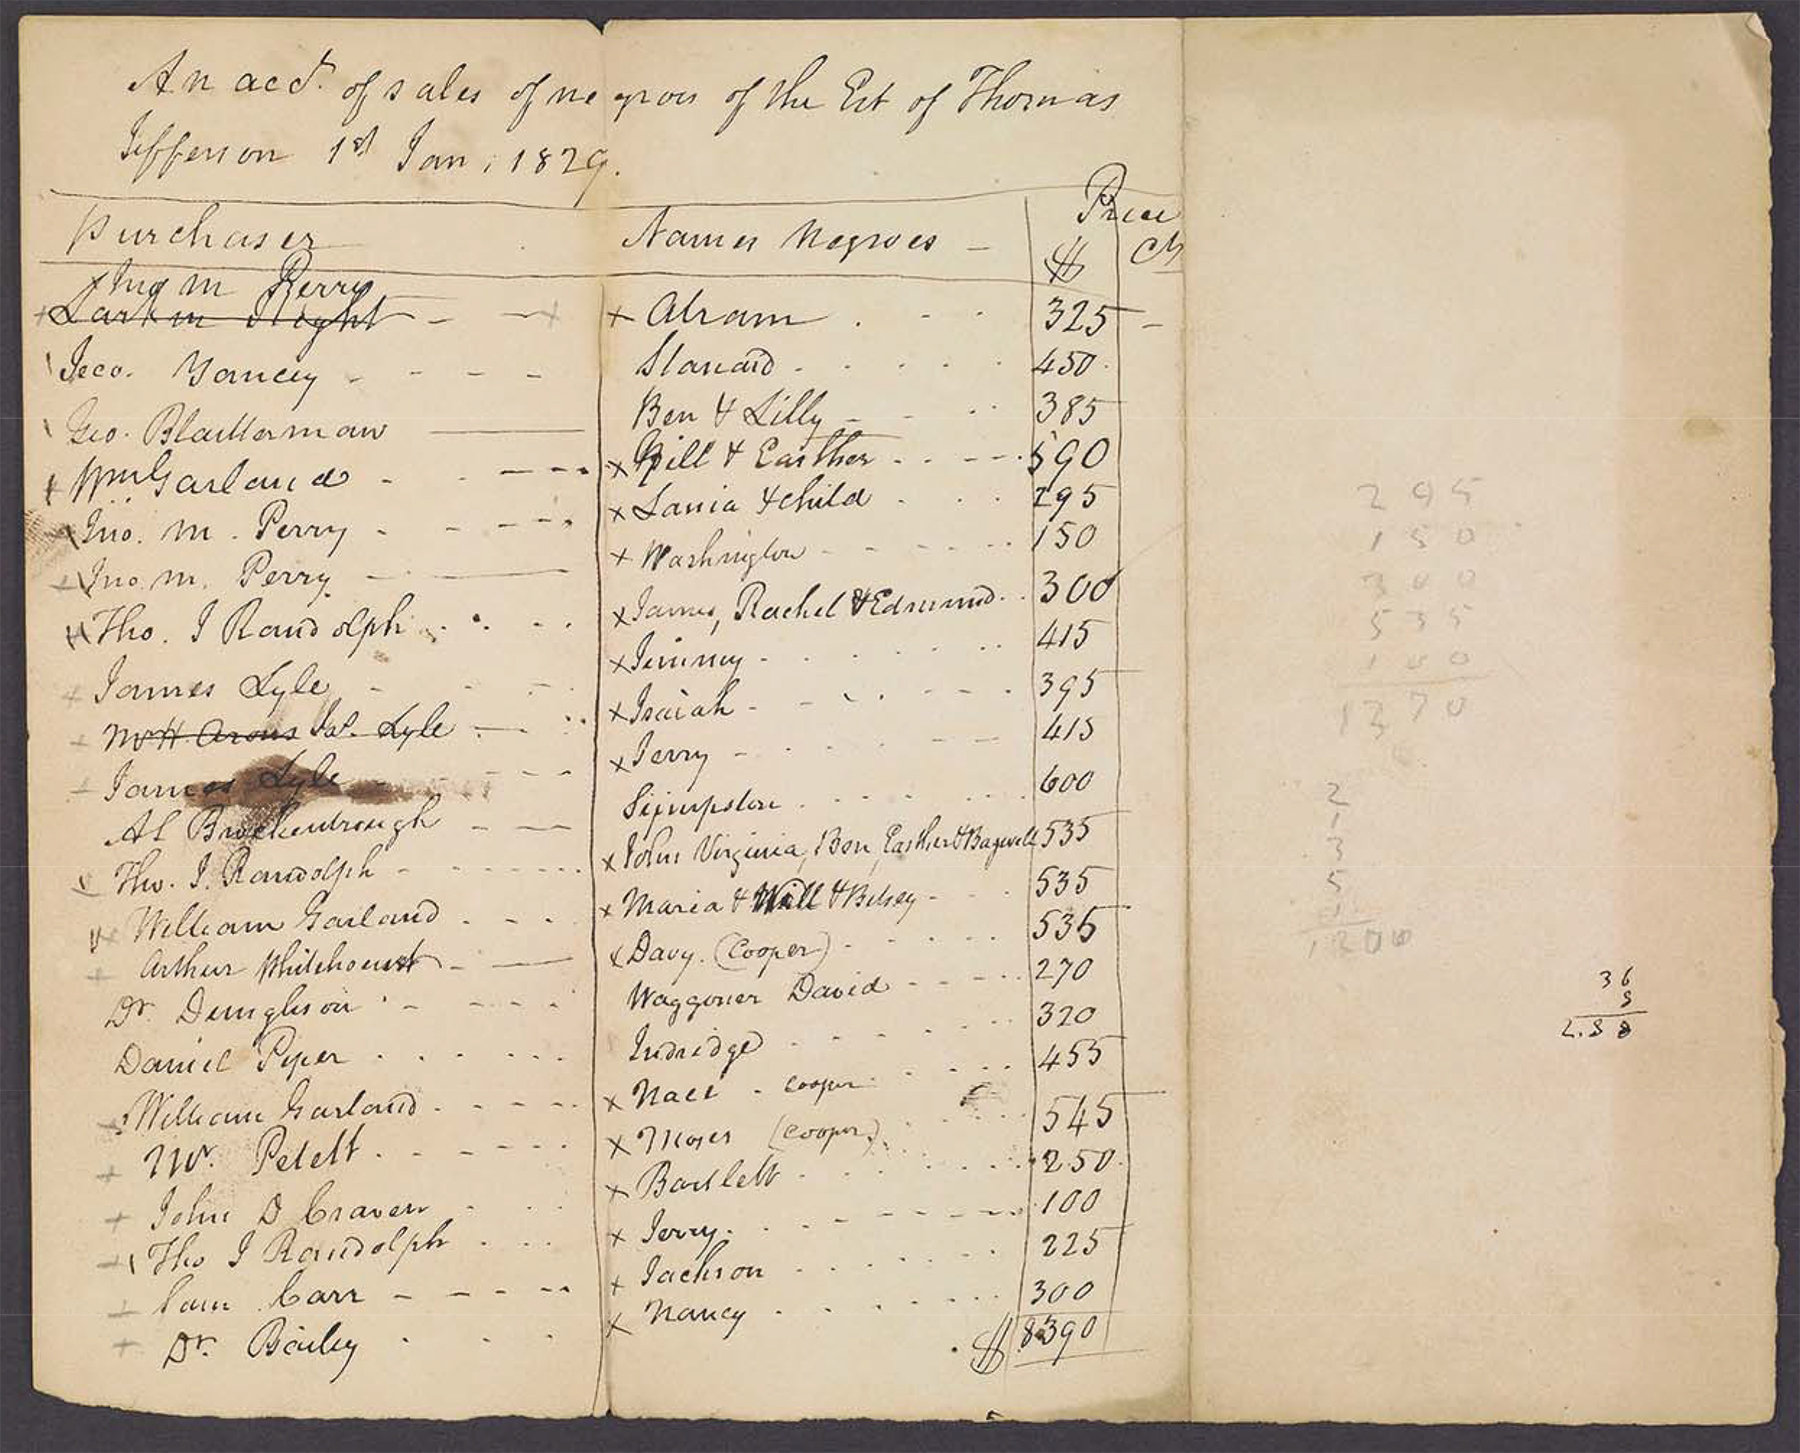 An acct. of sales of negroes of the Est of Thomas
Jefferson 1st Jan, 1829.
Purchaser Names Negroes Price
$ Cts
Jno M Perry
Larkin Slaght × Abram 325
Jeco. Yancey Stanard 450
Geo. Blatterman Ben & Lilly 385
Wm Garland × Gill & Easther 590
Jno. M. Perry × Lania & child 295
Jno. M. Perry × Washington 150
Tho. J Randolph × James, Rachel & Edmund 300
James Lyle × Jimmy 415
Mr H. Jas. Lyle × Isaiah 395
James Lyle × Jerry 415
Al Brockenbrough Simpston 600
Tho. J. Randolph × John Virginia, Ben, Easther & Bagwell 535
William Garland × Maria & Will & Betsey 535
Arthur Whitehourst × Davy. (Cooper) 535
Dr. Dunglison Waggoner David 270
Daniel Piper Indridge 320
William Garland × Nace - Cooper 455
Mr. Petett × Moses (Cooper) 545
John D Craven × Bartlett 250
Tho J Randolph × Jerry. 100
Sam Carr × Jackson 225
Dr. Bailey × Nancy 300
$ 8390
295
150
300
535
1370
2
1
3
5
1200
36
8
2.88